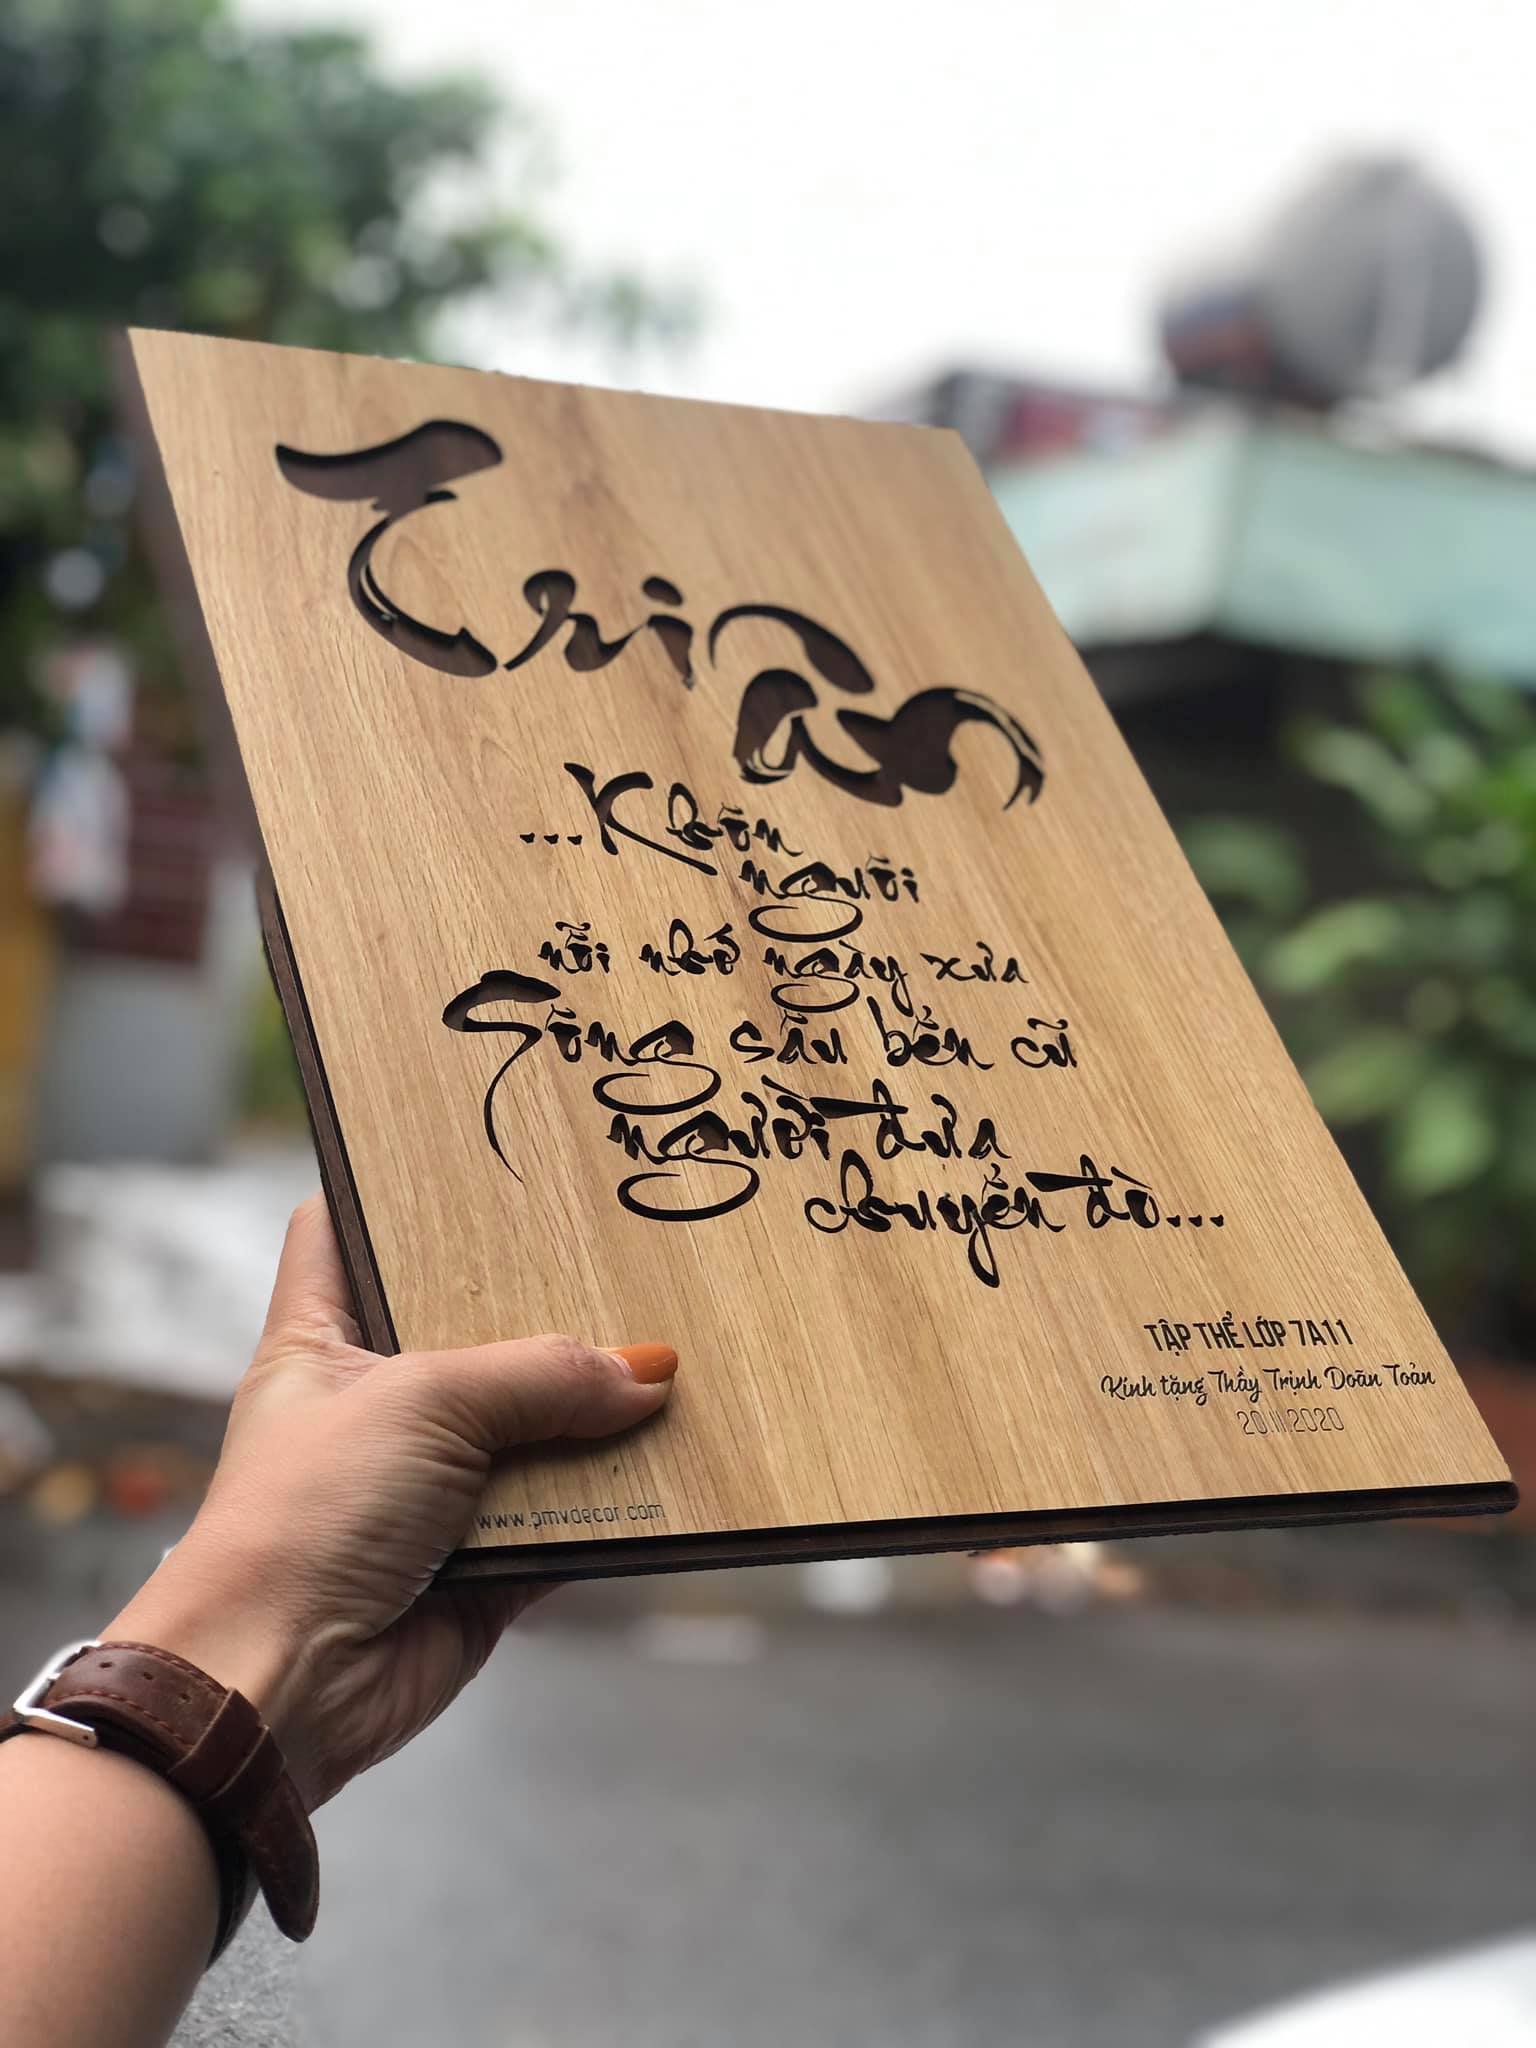 Tri
Ân
...Khôn
nguôi
nỗi nhớ ngày xưa
Sông sâu bến cũ
người đưa
chuyến đò...
TẬP THỂ LỚP 7A11
Kính tặng Thầy Trịnh Doãn Toản
20.11.2020
www.pmvdecor.com